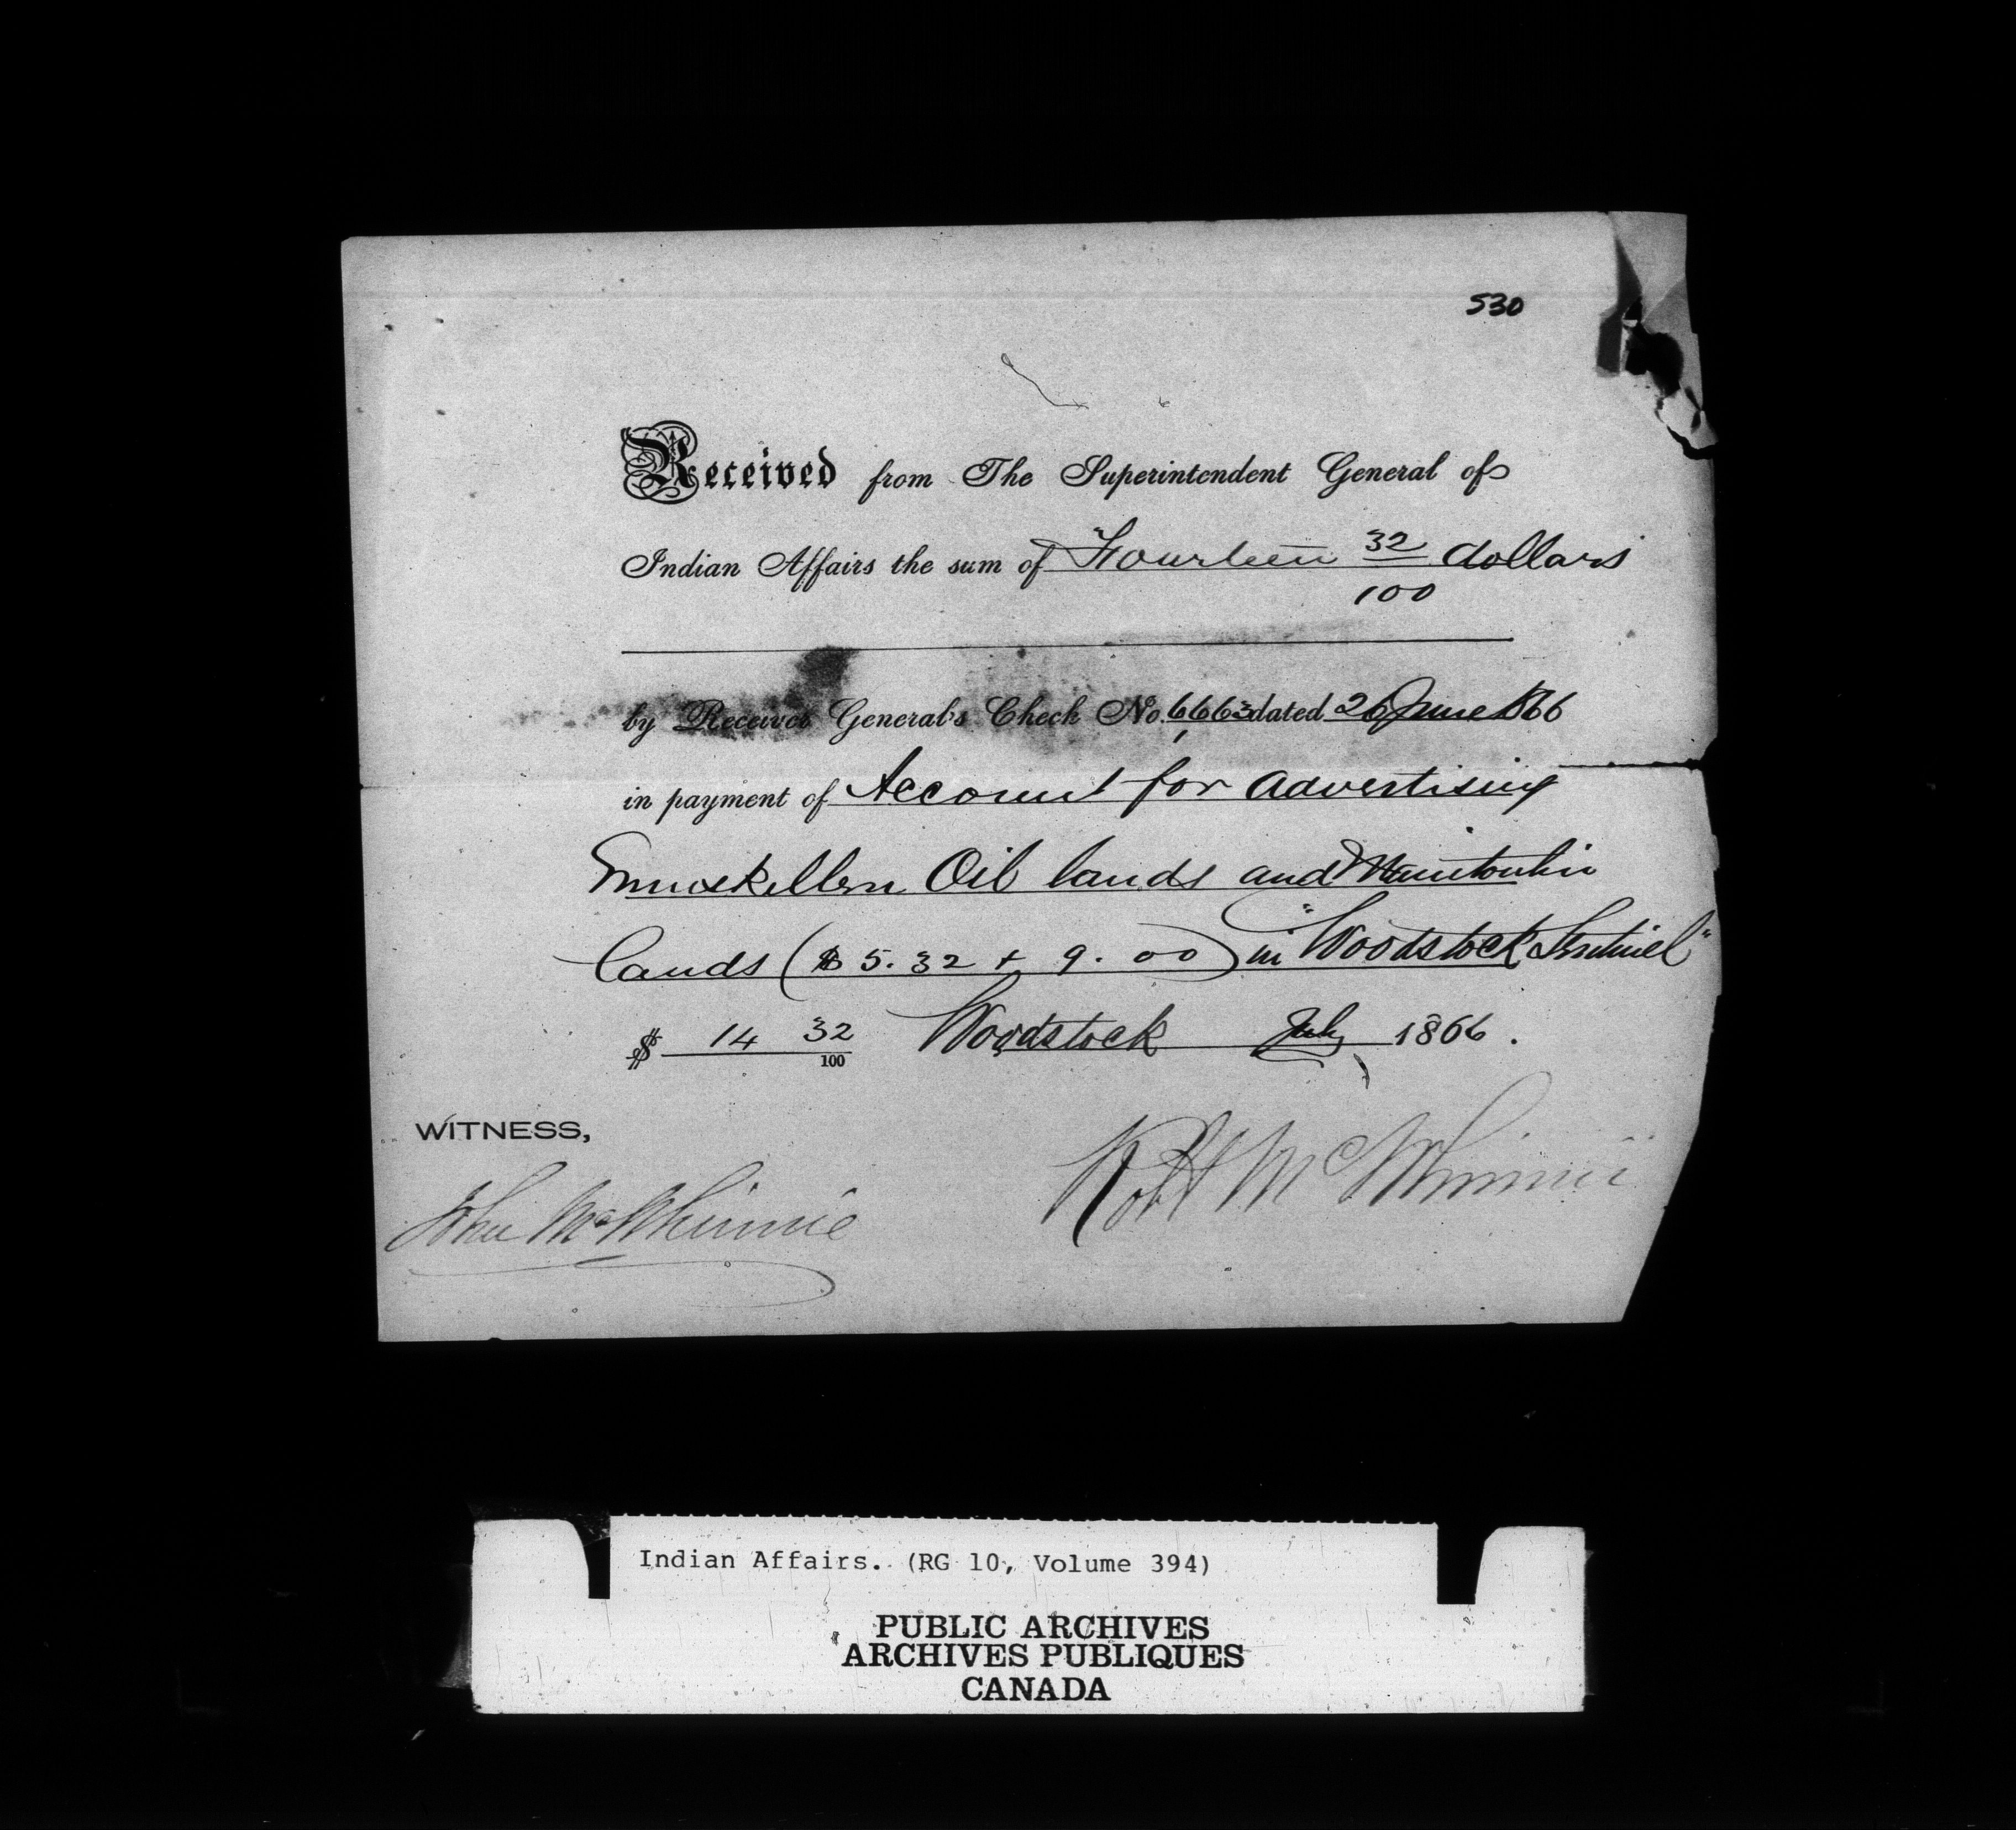 530
Received from The Superintendent General of
Indian Affairs the sum of Fourteen 32/100 dollars
by Receiver General's Check No. 6,663 dated 26 June 1866
in payment of Account for advertising
Enniskillen Oil lands and Manitoulin
lands ($5.32 + 9.00) in "Woodstock Sentinel"
$ 14 32/100 Woodstock July 1866.
WITNESS,
Robt McWhinnie
John McWhinnie
Indian Affairs. (RG 10, Volume 394)
PUBLIC ARCHIVES
ARCHIVES PUBLIQUES
CANADA